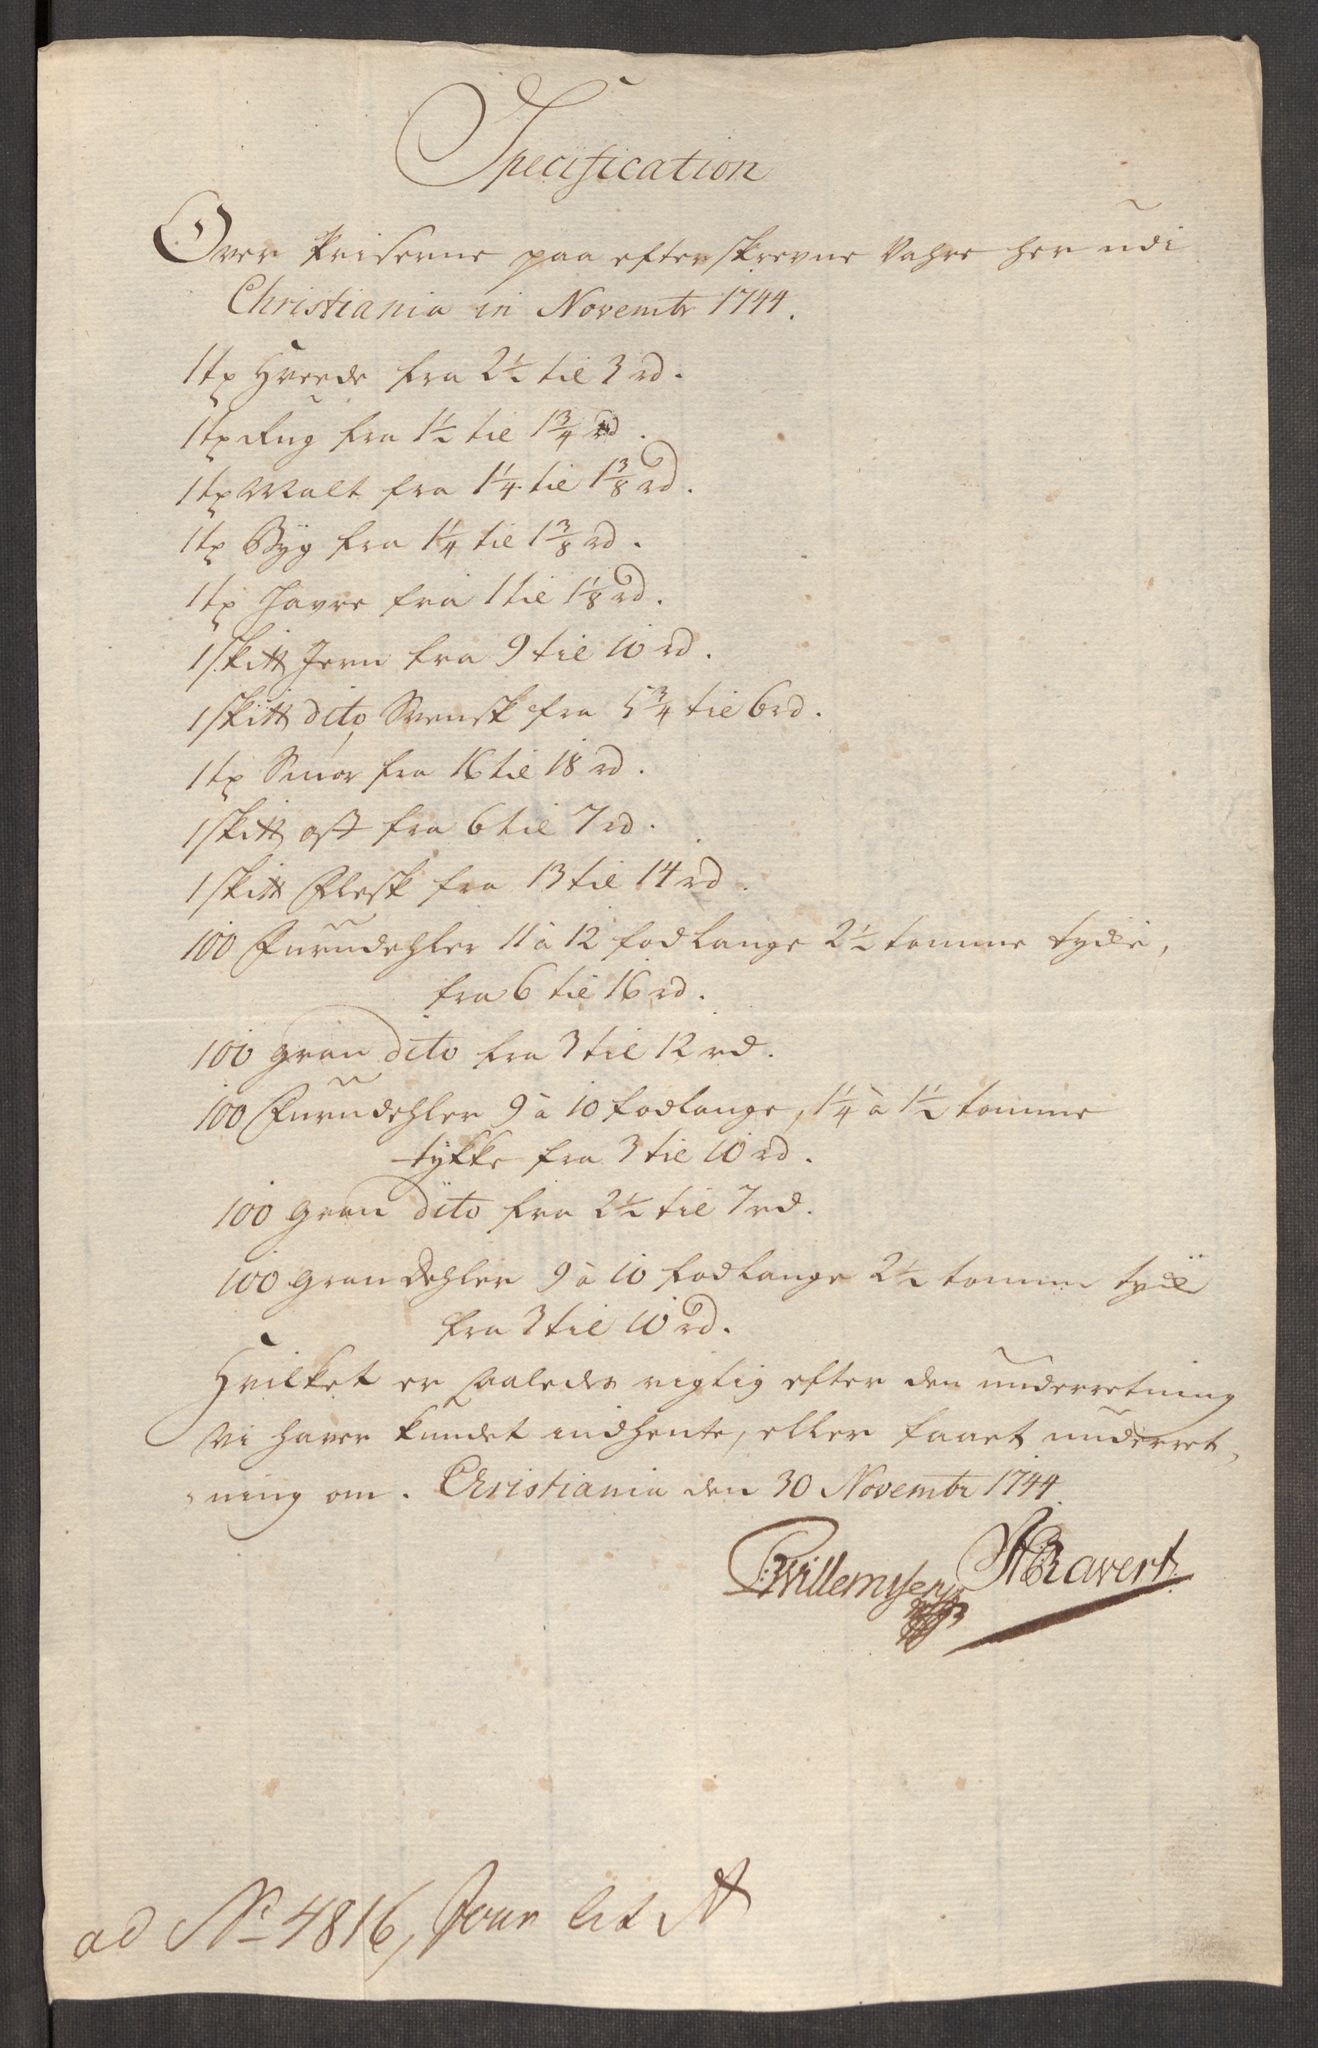 Specification
Over Priserne paa efterskrevne Vahre her udi
Christiania in Novembr 1744.
1 tp Hveede fra 2½ til 3 rd.
1 tp Rug fra 1½ til 1¾ rd.
1 tp Malt fra 1¼ til 1⅜ rd.
1 tp Byg fra 1¼ til 1⅜ rd.
1 tp Havre fra 1 til 1⅛ rd.
1 sk℔ Jern fra 9 til 10 rd.
1 sk℔ dito Svensk fra 5¾ til 6 rd.
1 tp Smør fra 16 til 18 rd.
1 sk℔ ost fra 6 til 7 rd.
1 sk℔ Flesk fra 13 til 14 rd.
100 Furudehler 11 à 12 fod lange 2½ tomme tyke,
fra 6 til 16 rd.
100 gran dito fra 3 til 12 rd.
100 Furudehler 9 à 10 fod lange, 1¼ à 1½ tomme
tykke fra 3 til 10 rd.
100 gran dito fra 2½ til 7 rd.
100 gran dehler 9 à 10 fod lange 2½ tomm tyk
fra 3 til 10 rd.
Hvilket er saaledes rigtig efter den underretning
vi haver kundet indhente, eller faaet underret-
ning om. Christiania den 30 Novembr 1744.
Willemsen Ravert
ad No 4816, Jour lit A